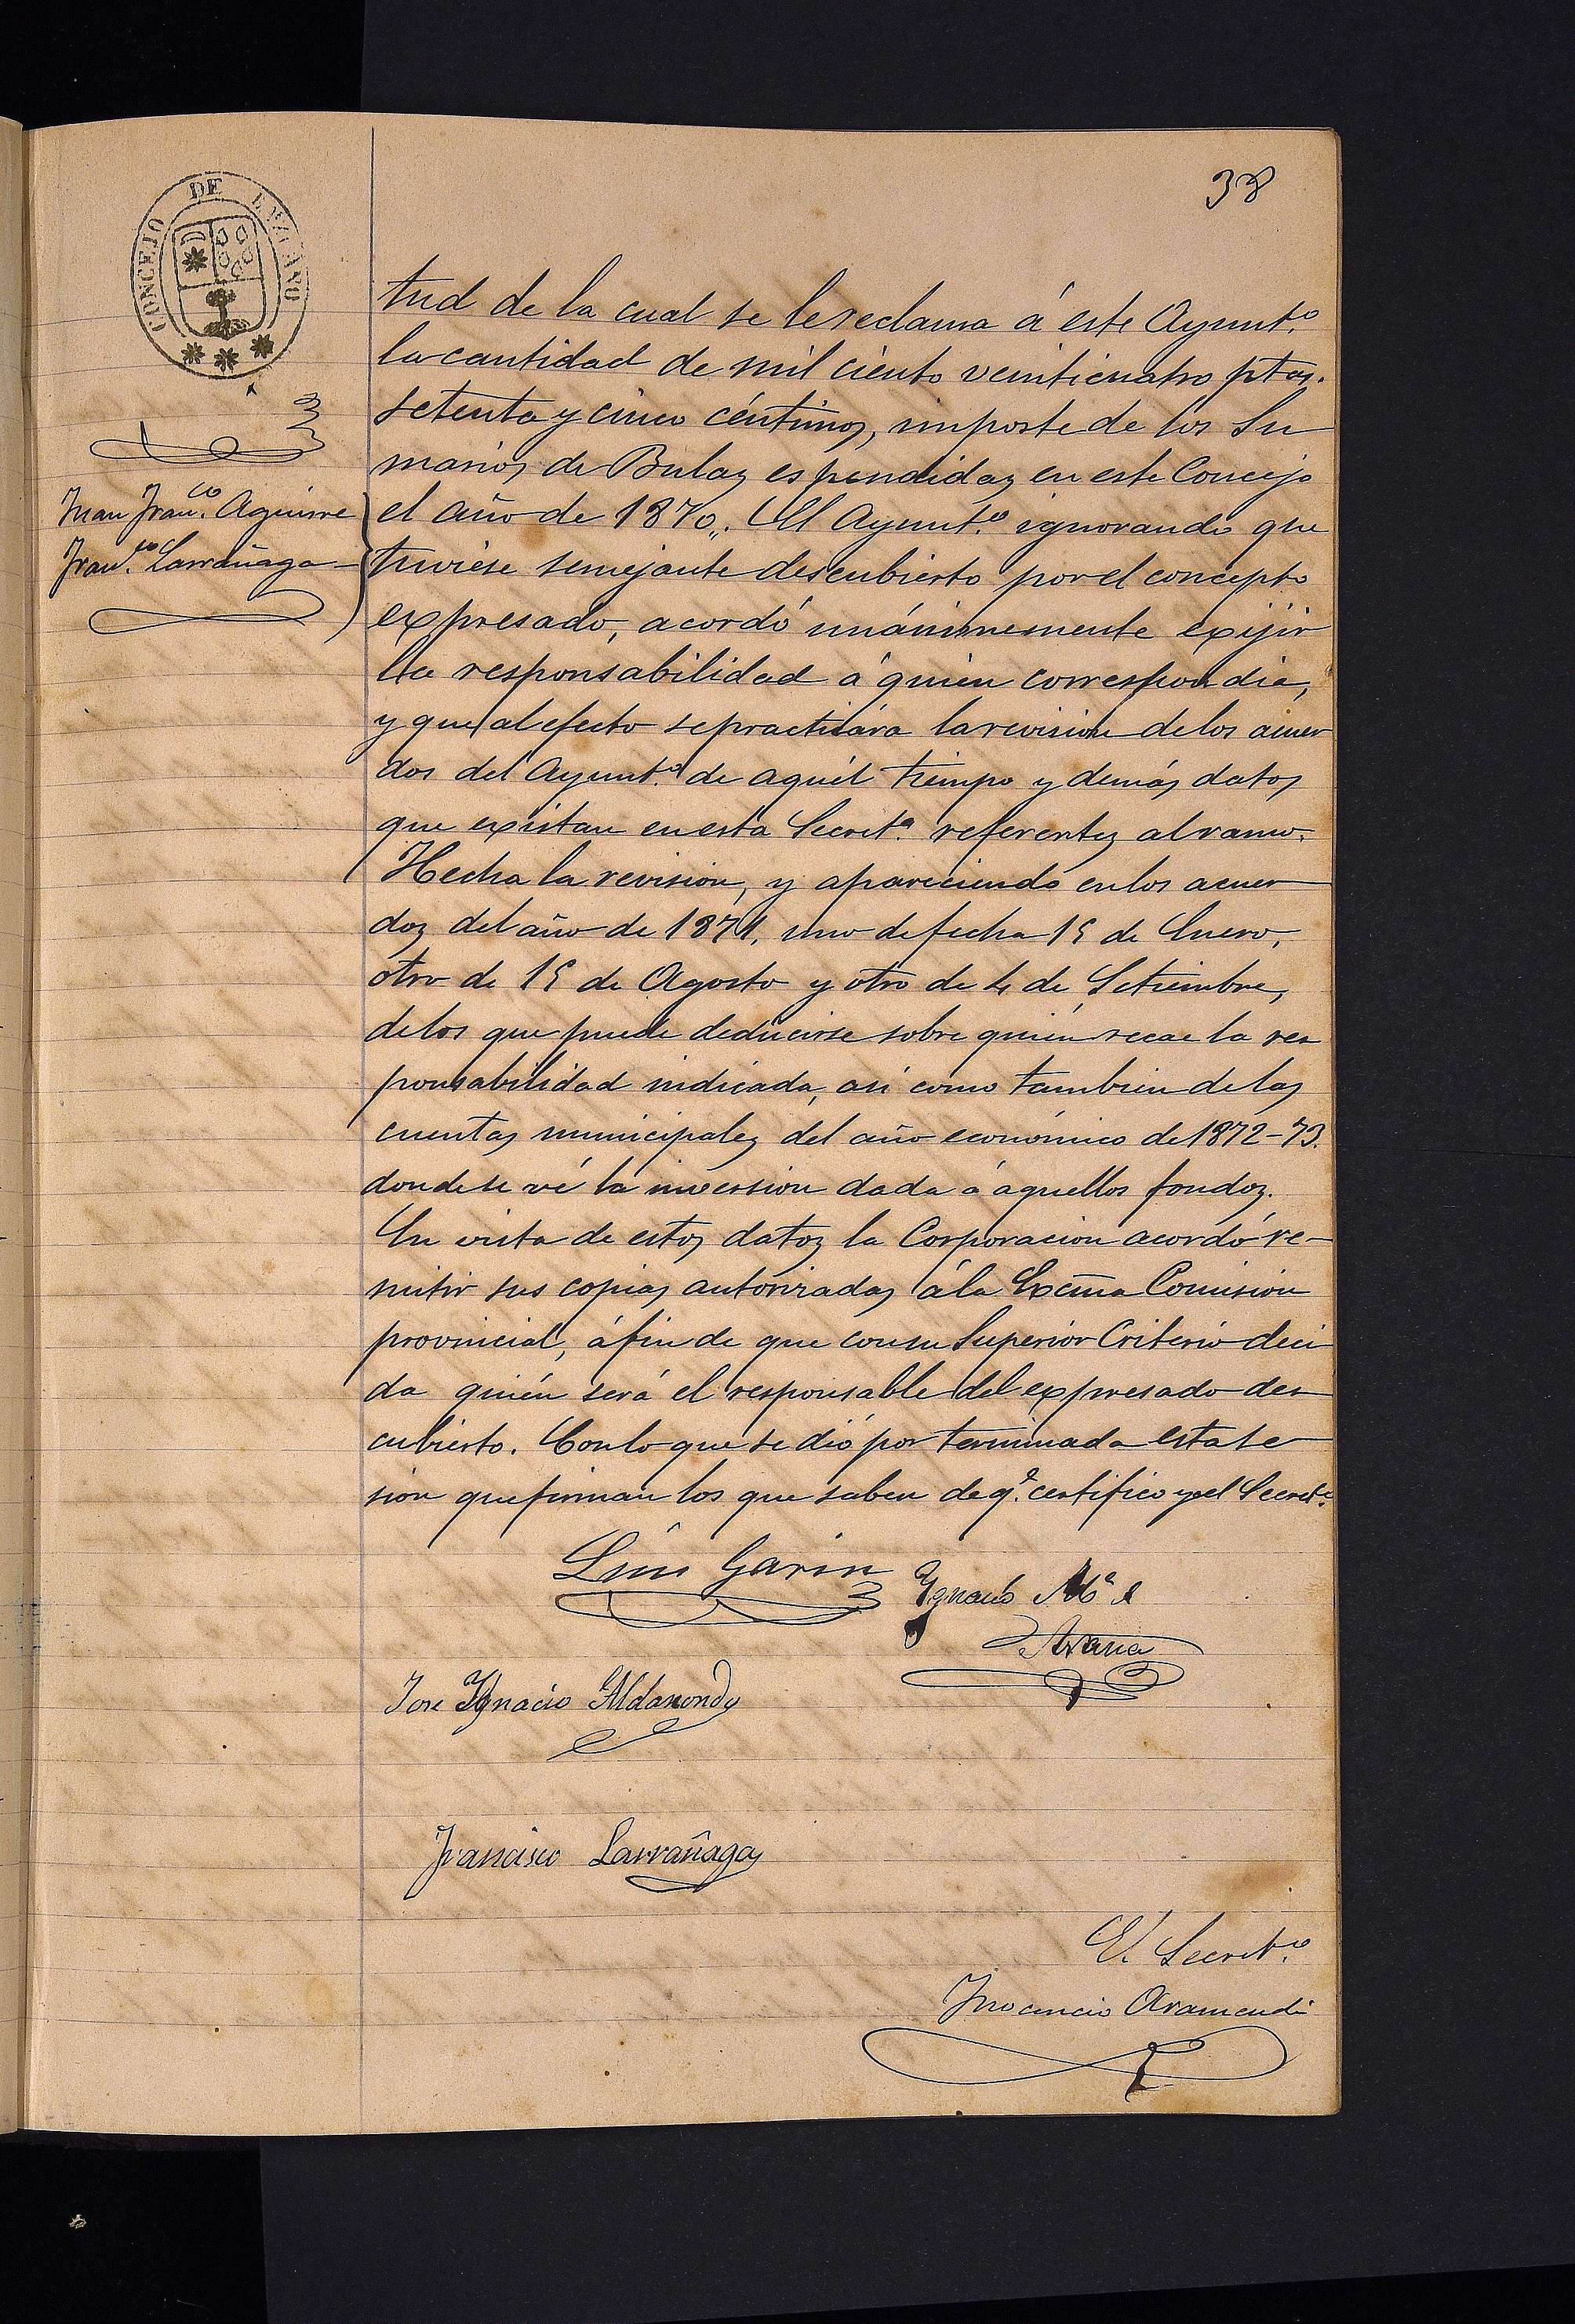 38
CONCEJO DE
Juan Fran.co Aguirre
Fran.co Larrañaga
tud de la cual se le reclama á éste Ayunt.o
la cantidad de mil ciento veinticuatro ptas.
setenta y cinco céntimos, importe de los Su
marios de Bulas espendidas en este Concejo
el año de 1870,, El Ayunt.o ignorando que
tuviese semejante descubierto por el concepto
expresado, acordó unánimemente exijir
la responsabilidad á quien correspondia,
y que al efecto se practicára la revision de los acuer
dos del Ayunt.o de aquél tiempo y demás datos
que existan en esta Secret.a referentes al ramo.
Hecha la revision, y apareciendo en los acuer
dos del año de 1871, uno de fecha 15 de Enero,
otro de 15 de Agosto y otro de 4 de Setiembre,
de los que puede deducirse sobre quién recae la res
ponsabilidad indicada, asi como tambien de las
cuentas municipales del año económico de 1872-73.
donde se vé la inversion dada á aquellos fondos.
En vista de estos datos la Corporacion acordó re-
mitir sus copias autorizadas á la Excma Comision
provincial, á fin de que con su Superior Criterio deci
da quién será el responsable del expresado des
cubierto. Con lo que se dió por terminada esta se
sion que firman los que saben de q.e certifico yo el Secret.o
Luis Garin
Ygnacio Ma. de
Arana
Jose Ygnacio Aldanondo
Francisco Larrañaga
El Secret.o
Inocencio Aramendi